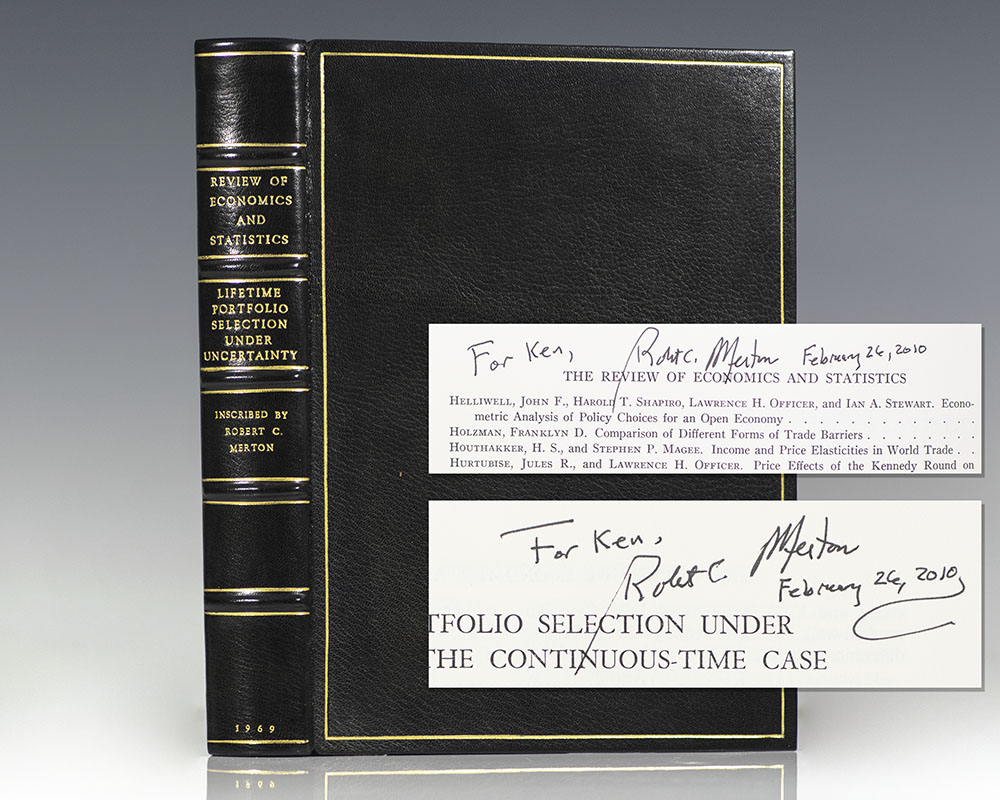 REVIEW OF
ECONOMICS
AND
STATISTICS
LIFETIME
PORTFOLIO
SELECTION
UNDER
UNCERTAINTY
INSCRIBED BY
ROBERT C.
MERTON
1969
For Ken, Robt C. Merton February 26, 2010
THE REVIEW OF ECONOMICS AND STATISTICS
HELLIWELL, JOHN F., HAROLD T. SHAPIRO, LAWRENCE H. OFFICER, and IAN A. STEWART. Econo-
metric Analysis of Policy Choices for an Open Economy . . . . . . . . . . . . .
HOLZMAN, FRANKLYN D. Comparison of Different Forms of Trade Barriers . . . . . . . .
HOUTHAKKER, H. S., and STEPHEN P. MAGEE. Income and Price Elasticities in World Trade . .
HURTUBISE, JULES R., and LAWRENCE H. OFFICER. Price Effects of the Kennedy Round on
For Ken,
Robt C Merton
February 26, 2010
TFOLIO SELECTION UNDER
THE CONTINUOUS-TIME CASE